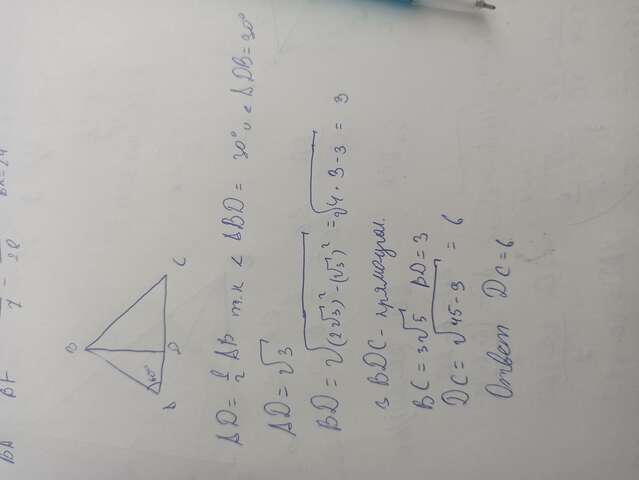 BA BH
7 = 28
BK=24
B
60°
A
D
C
AD = 1/2 AB т.к < ABD = 30° и < ADB = 90°
AD = √3
BD = √(2√3)² - (√3)² = √4 · 3 - 3 = 3
з BDC - прямоугол.
BC = 3√5 BD = 3
DC = √45 - 9 = 6
Ответ DC = 6